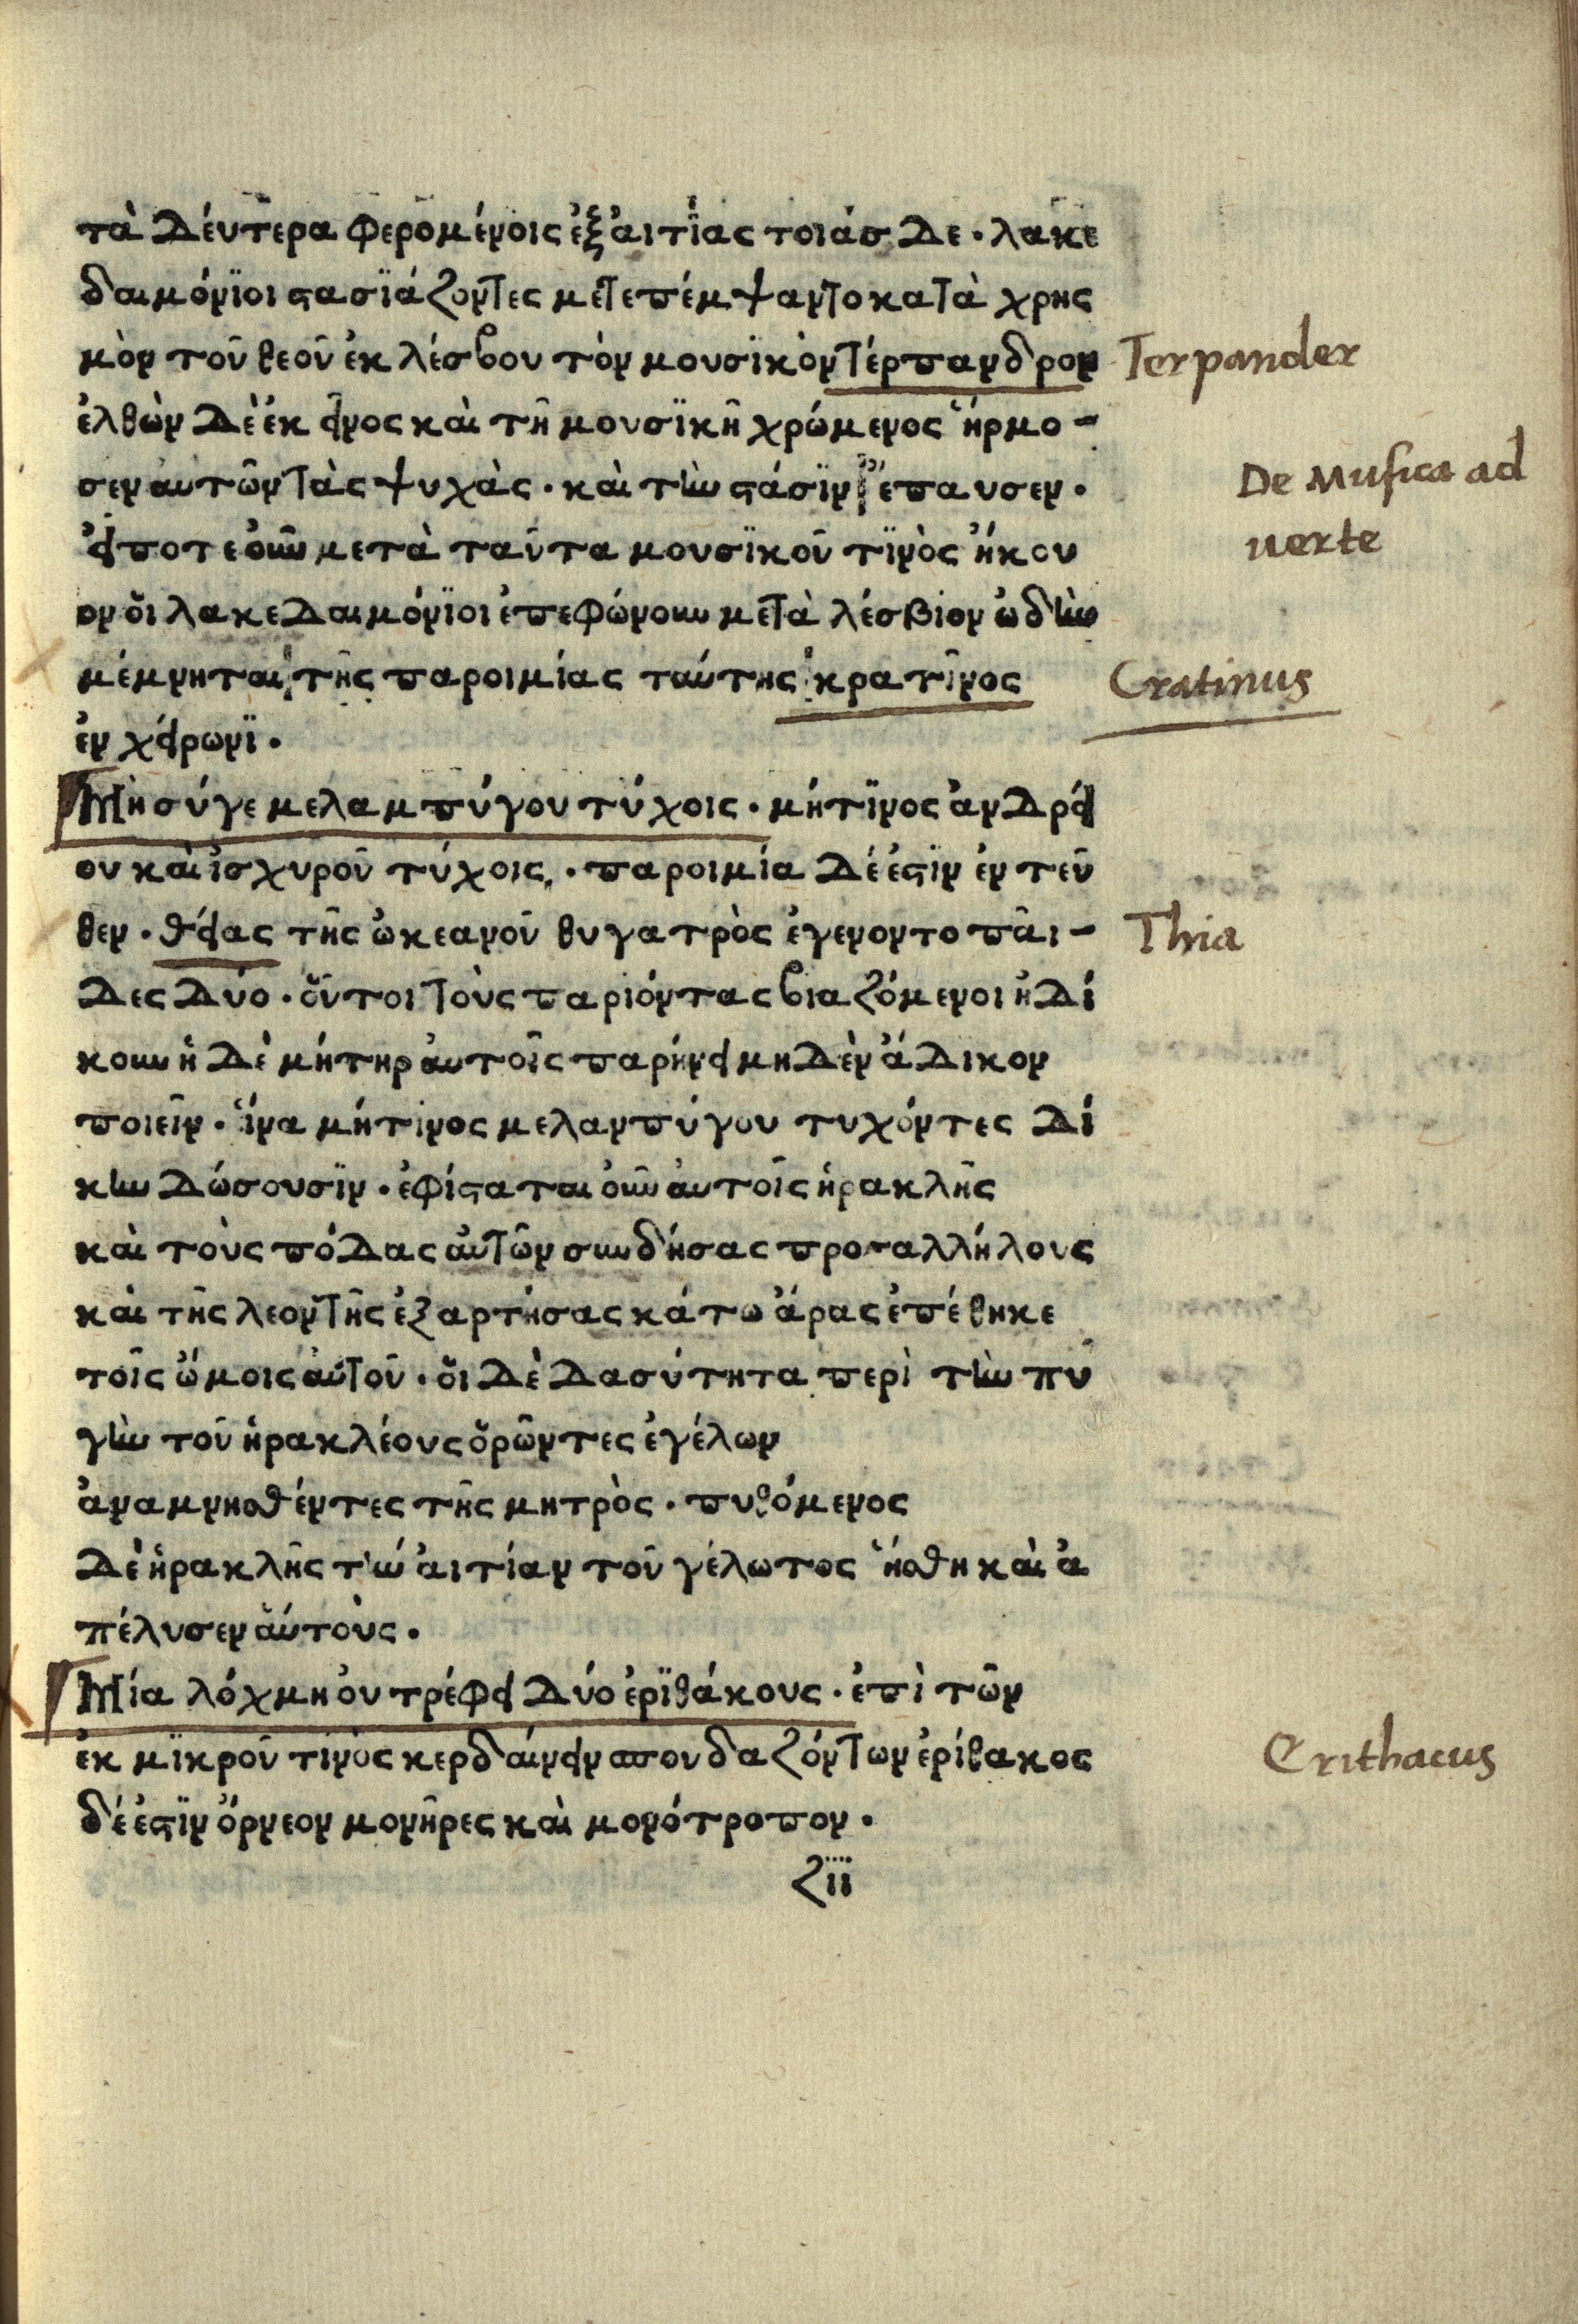 τὰ δέυτερα φερομένοις ἐξ ἀιτίας τοιάσ δε · λακε
δαιμόνϊοι στασϊάζοντες μετεπέμψαντο κατὰ χρης
μὸν τοῦ θεοῦ ἐκ λέσβου τὸν μουσϊκὸν τέρπανδρον
Terpander
ἐλθὼν δὲ ἐκεῖνος καὶ τῆ μουσϊκῆ χρώμενος ἥρμο-
σεν αυτῶν τὰς ψυχὰς · καὶ τὴν στάσϊν ἔπαυσεν ·
De Musica ad
uerte
εἴποτε οὖν μετὰ ταῦτα μουσϊκοῦ τϊνὸς ἤκου
ον ὅι λακεδαιμόνϊοι ἐπεφώνουν μετὰ λέσβιον ὠδὴν
μέμνηται τῆς παροιμίας ταύτης κρατῖνος
Cratinus
ἐν χείρωνϊ ·
Μὴ σύγε μελαμπύγου τύχοις · μήτϊνος ἀνδρεί
ου καὶ ἰσχυροῦ τύχοις · παροιμία δέ ἐστϊν ἐν τεῦ
θεν · θείας τῆς ὠκεανοῦ θυγατρὸς ἐγενοντο πᾶι-
Thia
δες δύο · οὗτοι τοὺς παριόντας βιαζόμενοι ἠδί
κουν ἡ δὲ μήτηρ ἀυτοῖς παρήνει μηδὲν ἄδικον
ποιεῖν · ἵνα μήτινος μελανπύγου τυχόντες δί
κην δώσουσϊν · ἐφίσταται οὖν ἀυτοῖς ἡρακλῆς
καὶ τοὺς πόδας αὐτῶν συνδήσας προσαλλήλους
καὶ τῆς λεοντῆς ἐξαρτήσας κάτω ἄρας ἐπέθηκε
τοῖς ὤμοις αὐτοῦ · ὅι δὲ δασύτητα περὶ τὴν πυ
γὴν τοῦ ἡρακλέους ὁρῶντες ἐγέλων
ἀναμνησθέντες τῆς μητρὸς · πυθόμενος
δὲ ἡρακλῆς τὴν ἀιτίαν τοῦ γέλωτος ἥσθη καὶ ἀ
πέλυσεν ἀύτοὺς ·
Μία λόχμη ὀυ τρέφει δύο ἐρϊθάκους · ἐπὶ τῶν
ἐκ μϊκροῦ τινὸς κερδαίνειν σπουδαζόντων ἐρίθακος
Erithacus
δέ ἐστϊν ὄρνεον μονῆρες καὶ μονότροπον ·
ζiii